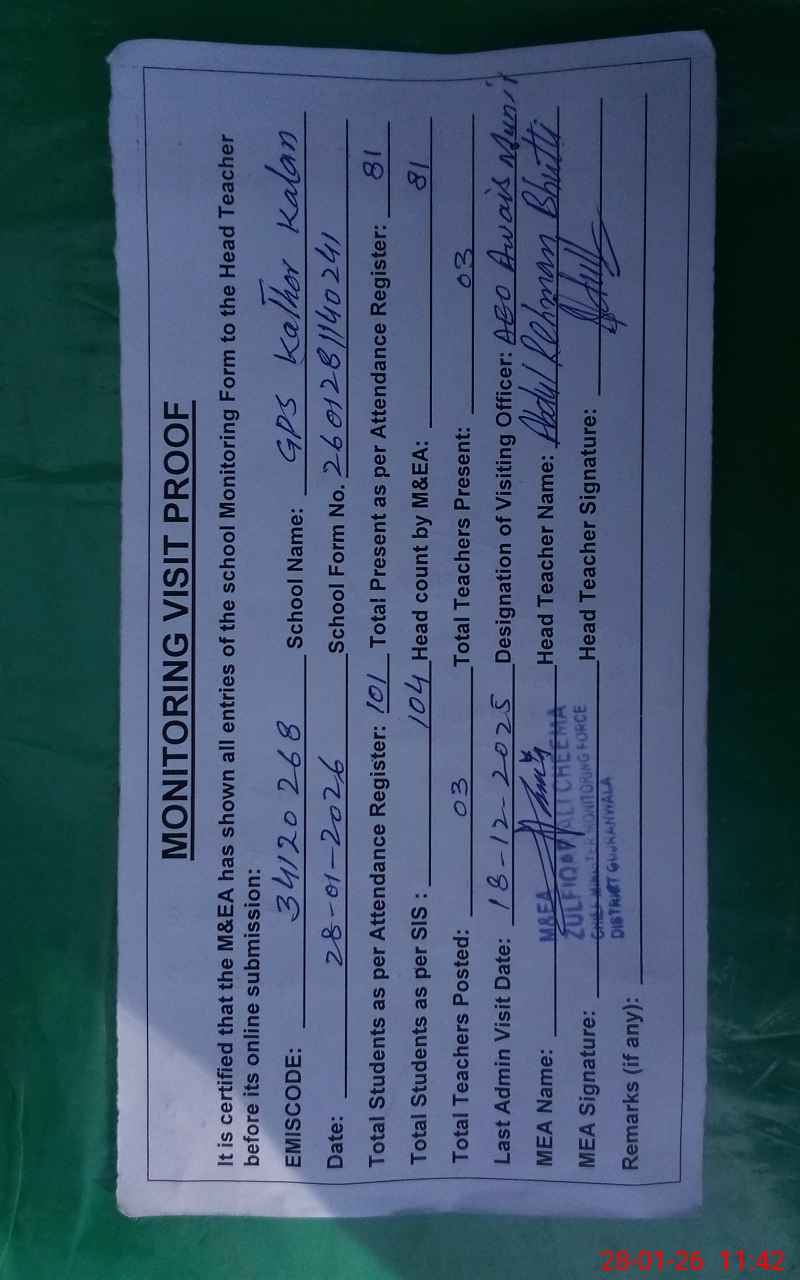 MONITORING VISIT PROOF
It is certified that the M&EA has shown all entries of the school Monitoring Form to the Head Teacher
before its online submission:
EMISCODE: 34120268 School Name: GPS Kathor Kalan
Date: 28-01-2026 School Form No. 2601281140241
Total Students as per Attendance Register: 101 Total Present as per Attendance Register: 81
Total Students as per SIS : 104 Head count by M&EA: 81
Total Teachers Posted: 03 Total Teachers Present: 03
Last Admin Visit Date: 18-12-2025 Designation of Visiting Officer: AEO Awais Munir
MEA Name: Head Teacher Name: Abdul Rehman Bhutti
M&EA
ZULFIQAR ALI CHEEMA
CHIEF MINISTER MONITORING FORCE
DISTRICT GUJRANWALA
MEA Signature: Head Teacher Signature:
Remarks (if any):
28-01-26 11:42